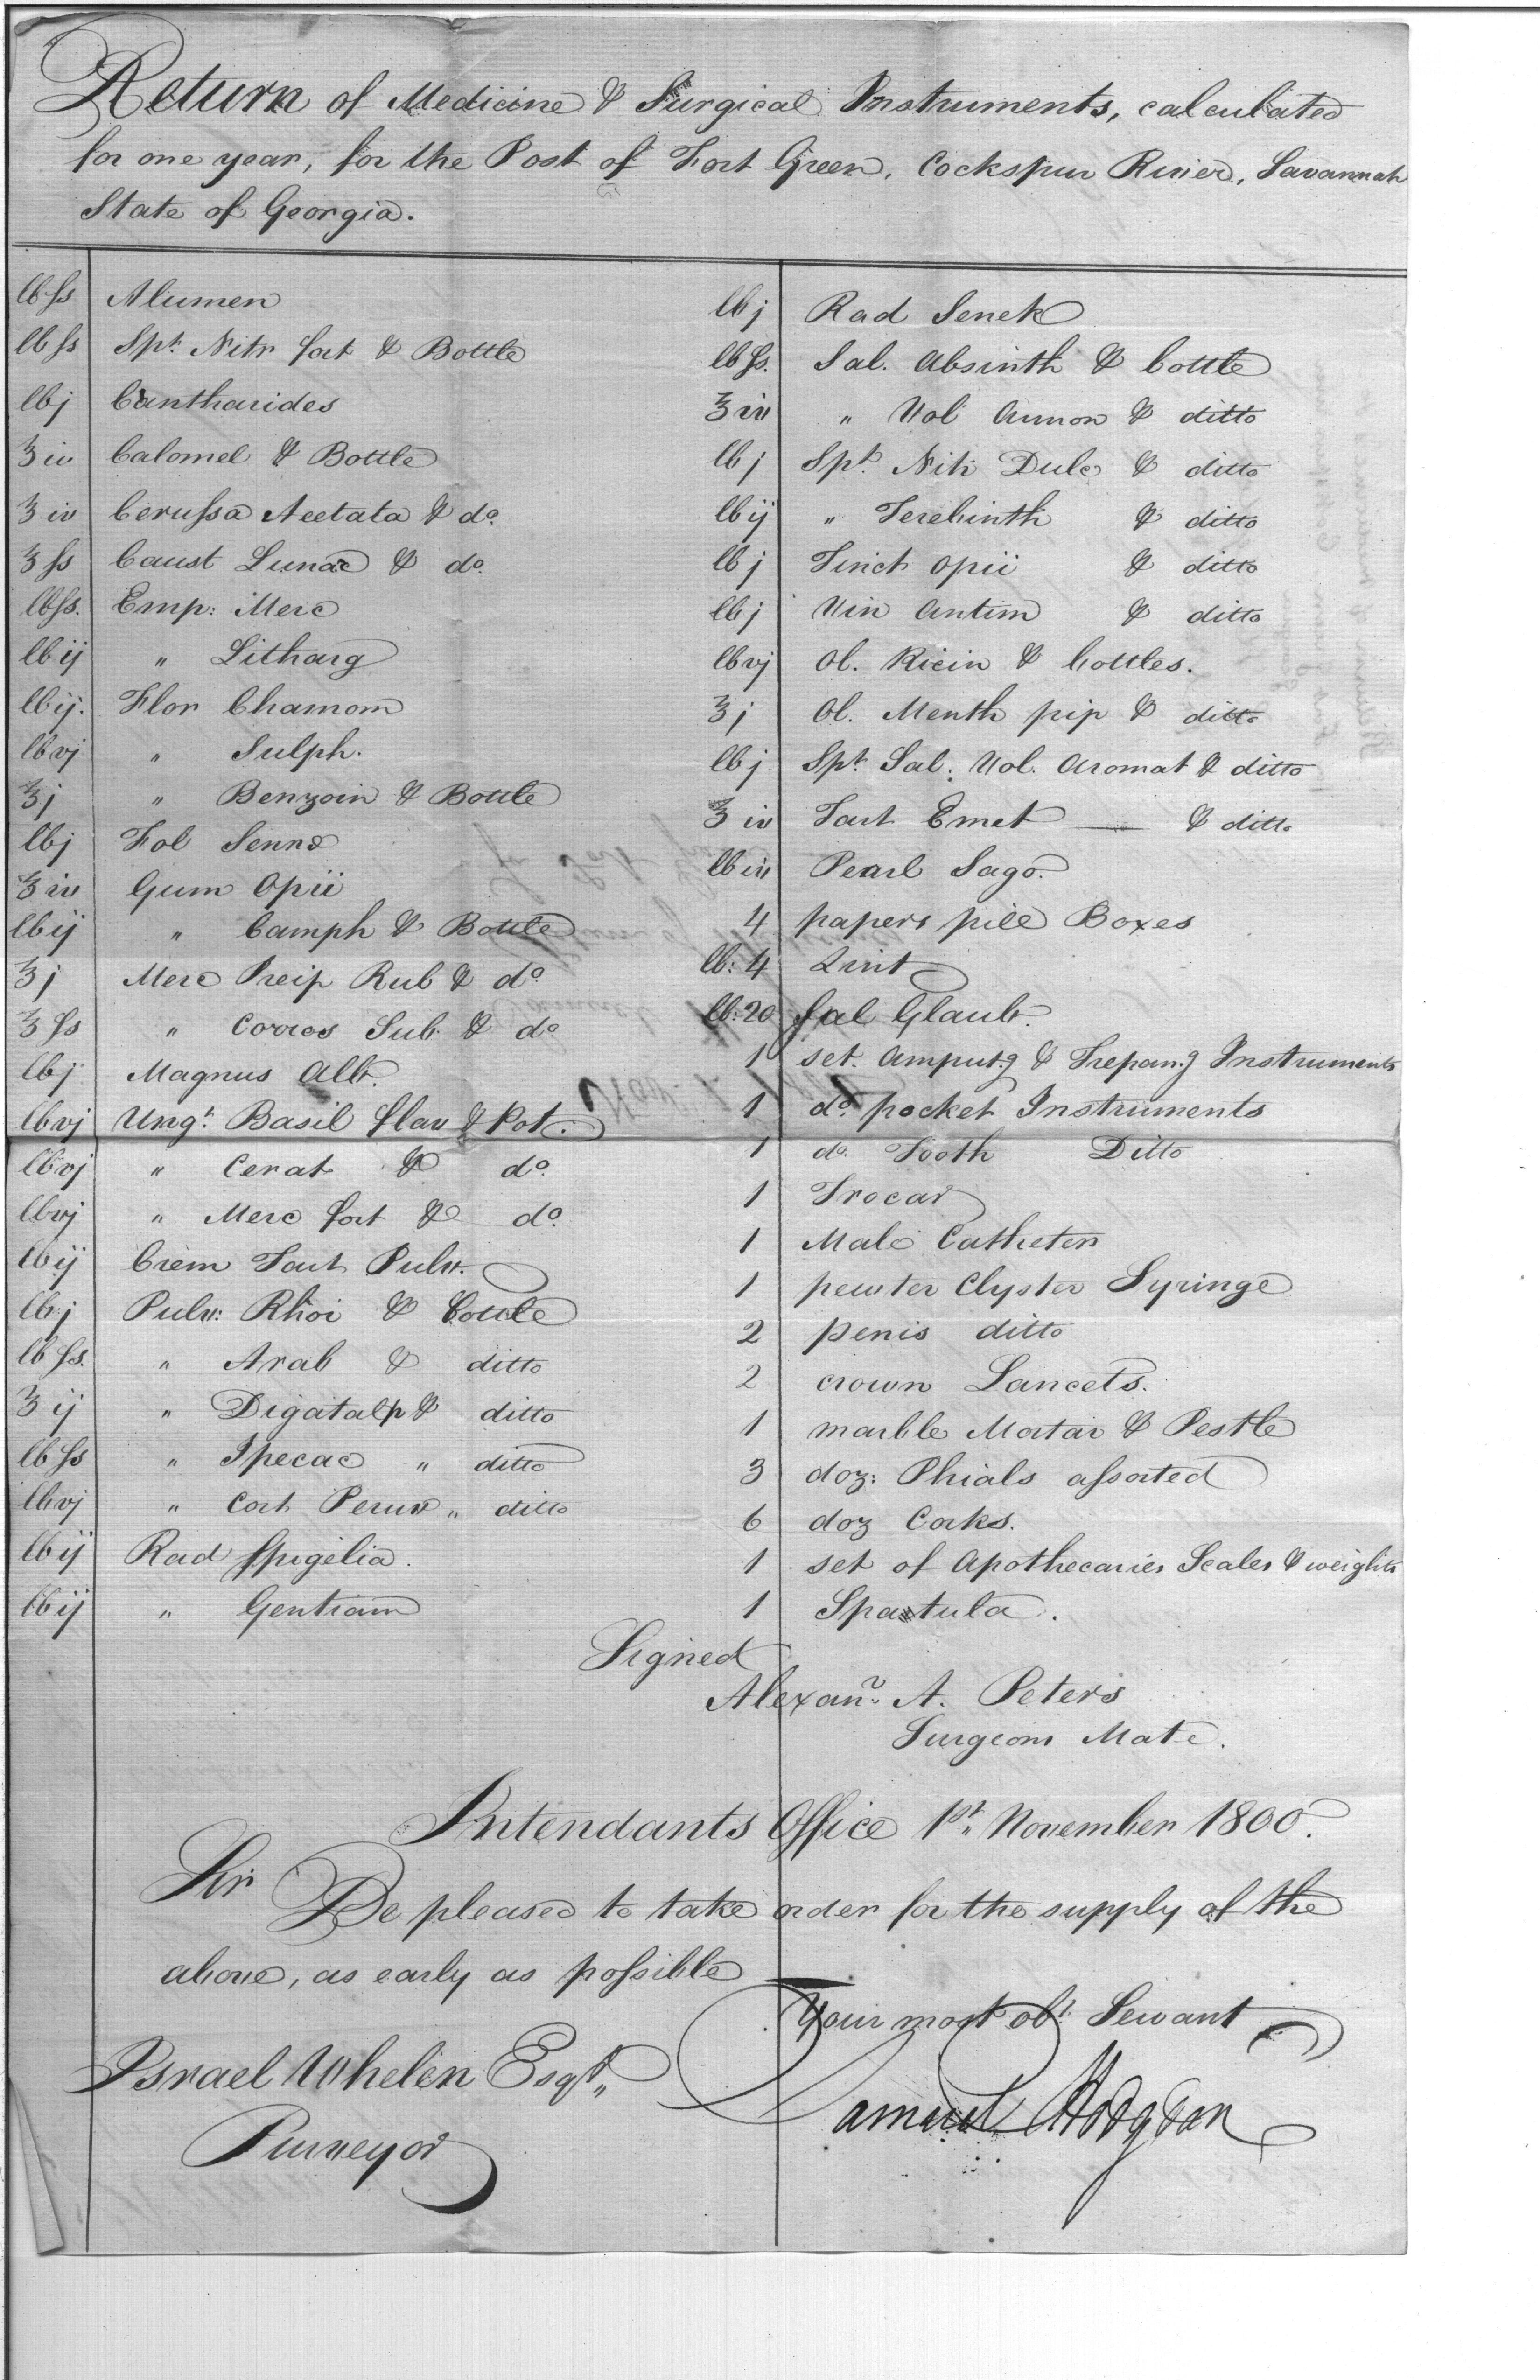 Return of Medicine & Surgical Instruments, calculated
for one year, for the Post of Fort Green, Cockspur River, Savannah
State of Georgia.
lb ſs Alumen
lb ſs Spt. Nitr fort & Bottle
lb j Cantharides
℥ iv Calomel & Bottle
℥ iv Ceruſsa Acetata & do.
℥ ſs Caust Lunae & do.
lb ſs. Emp: Merc
lb ij " Litharg
lb ij. Flor Chamom
lb vj " Sulph.
℥ j " Benzoin & Bottle
lb j Fol Senna
℥ iv Gum Opii
lb ij " Camph & Bottle
℥ j Merc Precip Rub & do.
℥ ſs " Corros Sub. & do
lb j Magnus Alb.
lb vj Ungt. Basil flav & Pot.
lb vj " Cerat & do.
lb vj " Merc fort & do.
lb ij Crem Tart Pulv.
lb j Pulv: Rhoi & bottle
lb ſs. " Arab & ditto
℥ ij " Digatalp & ditto
lb ſs " Ipecac " ditto
lb vj " Cort Peruv " ditto
lb ij Rad Spigelia.
lb ij " Gentiam
lb j Rad Senek
lb ſs. Sal. Absinth & bottle
℥ iv " Vol Ammon & ditto
lb j Spt. Nitr Dulc & ditto
lb ij " Terebinth & ditto
lb j Tinct Opii & ditto
lb j Vin Antim & ditto
lb vj Ol. Ricin & bottles.
℥ j Ol. Menth pip & ditto
lb j Spt. Sal: Vol. Aromat & ditto
℥ iv Tart Emet — & ditto
lb iv Pearl Sago.
4 papers pill Boxes
lb: 4 Lint
lb: 20 Sal Glaub.
1 set. Amputg & Trepang Instruments
1 do. pocket Instruments
1 do. Tooth Ditto
1 Trocar
1 Male Catheter
1 pewter Clyster Syringe
2 penis ditto
2 crown Lancets.
1 marble Mortar & Pestle
3 doz: Phials aſsorted
6 doz Corks.
1 set of Apothecaries Scales & weights
1 Spatula.
Signed
Alexanr. A. Peters
Surgeons Mate.
Intendants Office 1st. November 1800.
Sir
Be pleased to take order for the supply of the
above, as early as poſsible
Your most obt. Servant
Samuel Hodgdon
Israel Whelen Esqr.
Purveyor